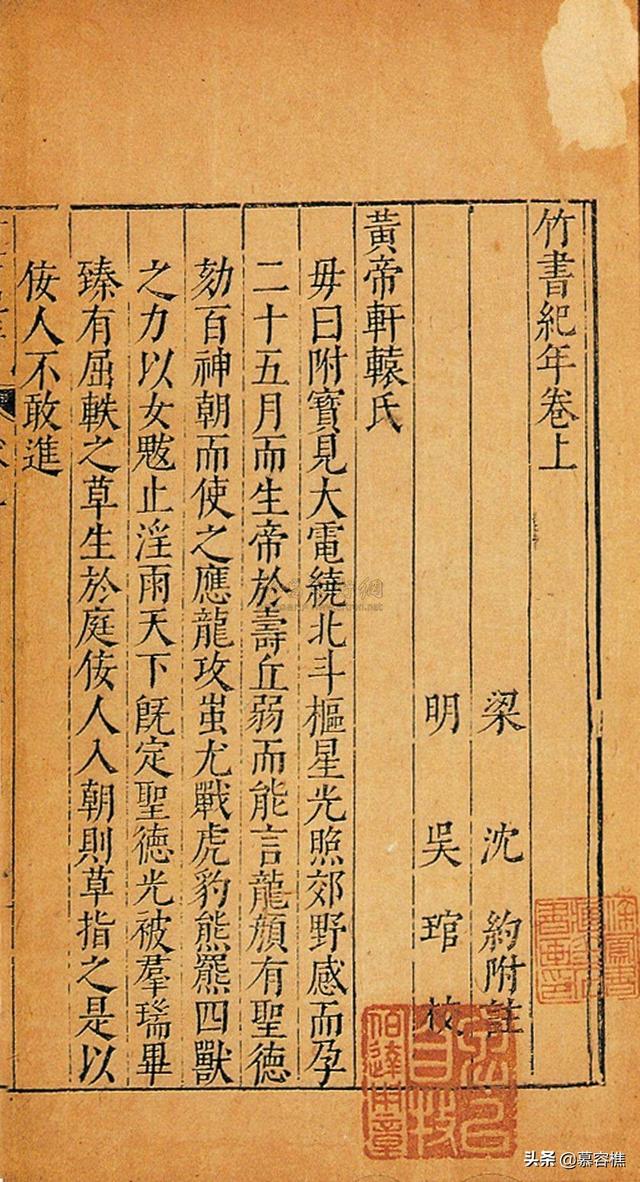 竹書紀年卷上
梁 沈 約附註
明 吳 琯 校
黃帝軒轅氏
母曰附寶見大電繞北斗樞星光照郊野感而孕
二十五月而生帝於壽丘弱而能言龍顏有聖德
劾百神朝而使之應龍攻蚩尤戰虎豹熊羆四獸
之力以女魃止淫雨天下旣定聖德光被羣瑞畢
臻有屈軼之草生於庭佞人入朝則草指之是以
佞人不敢進
头条 @慕容樵